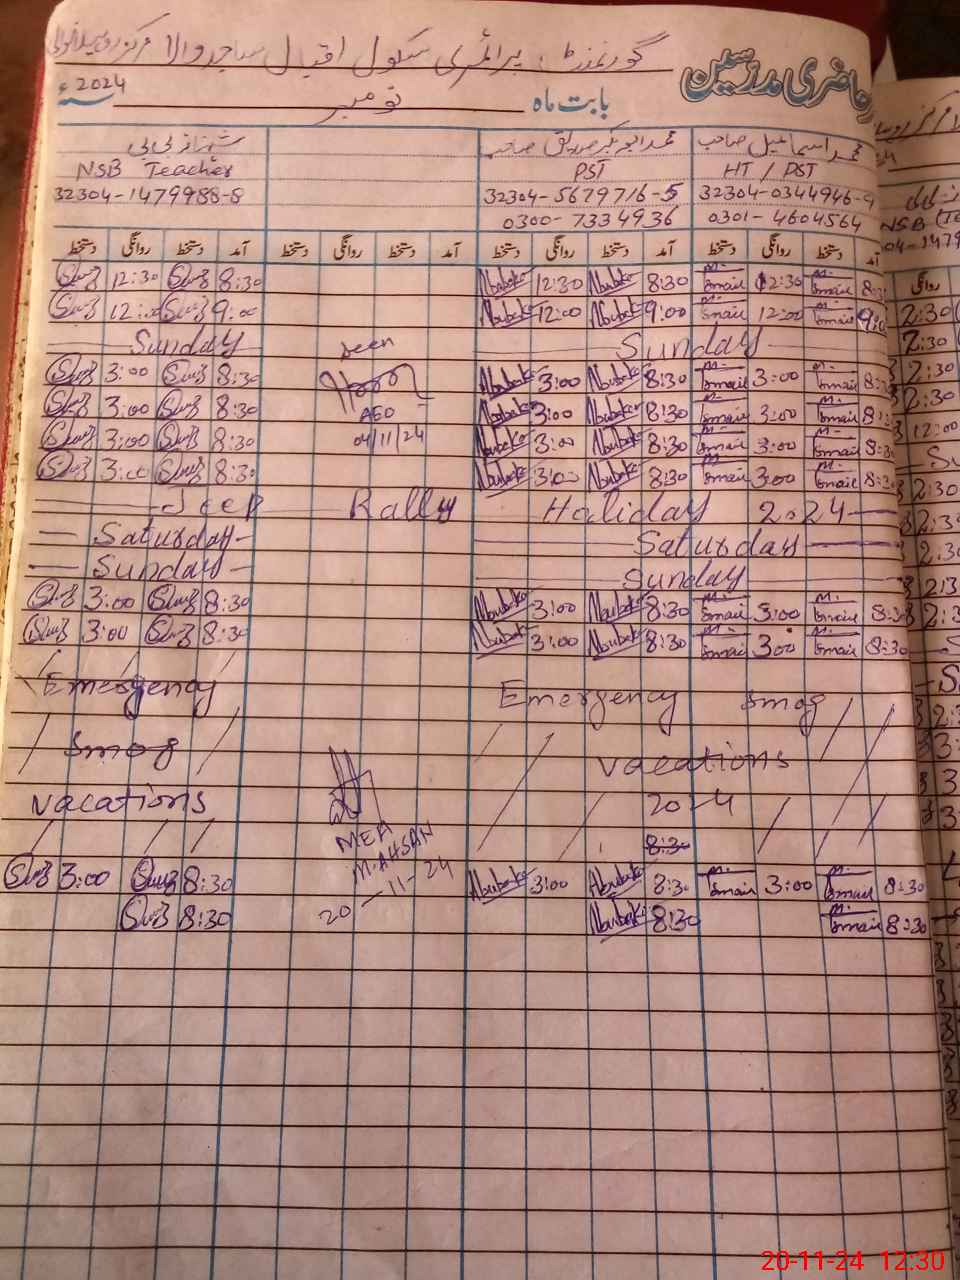 حاضری مدرسین
گورنمنٹ پرائمری سکول اقبال ساجد والا مرکز
بابت ماہ نومبر 2024ء
محمد اسماعیل صاحب محمد ابوبکر صدیق صاحب شہناز بی بی
HT / PST PST NSB Teacher
32304-0344946-9 32304-5679716-5 32304-1479988-8
0301-4604564 0300-7334936
آمد دستخط روانگی دستخط آمد دستخط روانگی دستخط آمد دستخط روانگی دستخط آمد دستخط روانگی دستخط
12:30 8:30 Abubakar 12:30 Abubakar 8:30 M. Ismail 12:30 M. Ismail 8:30
12:00 9:00 Abubakar 12:00 Abubakar 9:00 M. Ismail 12:00 M. Ismail 9:00
Sunday Seen Sunday
3:00 8:30 Abubakar 3:00 Abubakar 8:30 M. Ismail 3:00 M. Ismail 8:30
3:00 8:30 AEO Abubakar 3:00 Abubakar 8:30 M. Ismail 3:00 M. Ismail 8:30
3:00 8:30 04/11/24 Abubakar 3:00 Abubakar 8:30 M. Ismail 3:00 M. Ismail 8:30
3:00 8:30 Abubakar 3:00 Abubakar 8:30 M. Ismail 3:00 M. Ismail 8:30
Jeep Rally Holiday 2024
Saturday Saturday
Sunday Sunday
3:00 8:30 Abubakar 3:00 Abubakar 8:30 M. Ismail 3:00 M. Ismail 8:30
3:00 8:30 Abubakar 3:00 Abubakar 8:30 M. Ismail 3:00 M. Ismail 8:30
Emergency Emergency Smog
Smog Vacations
Vacations 2024
MEA 8:30
M. AHSAN
3:00 8:30 Abubakar 3:00 Abubakar 8:30 M. Ismail 3:00 M. Ismail 8:30
8:30 20-11-24 Abubakar 8:30 M. Ismail 8:30
20-11-24 12:30